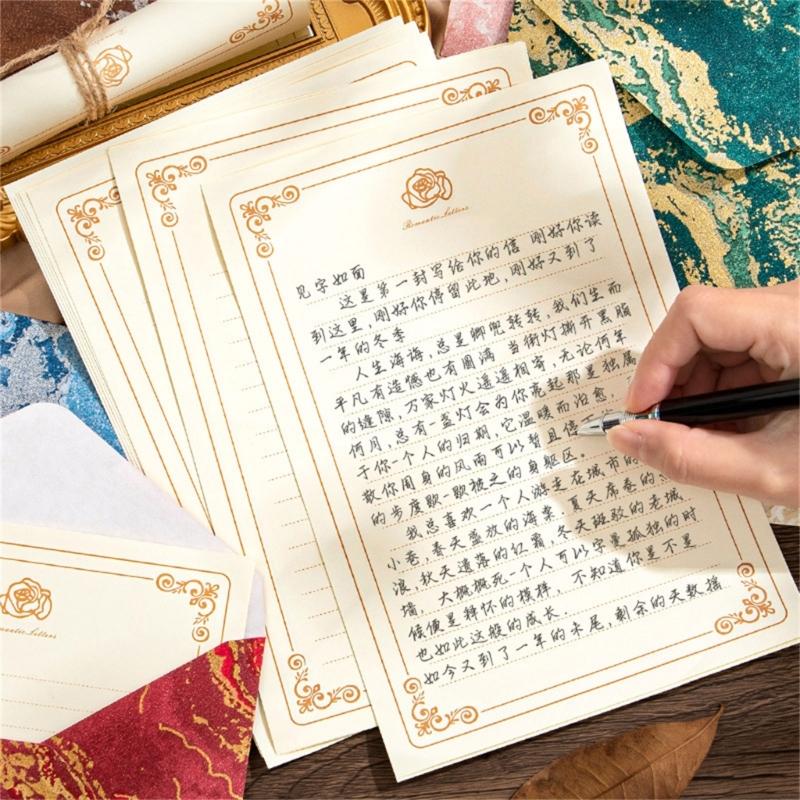 Romantic Letters
见字如面
这是第一封写给你的信 刚好你读
到这里,刚好你停留此地,刚好又到了
一年的冬季
人生海海,总是兜兜转转,我们生而
平凡有遗憾也有圆满 当街灯撕开黑脂
的缝隙,万家灯火遥遥相寄,无论何年
何月,总有一盏灯会为你亮起那是独属
于你一个人的归期,它温暖而治愈,
散你周身的风雨可以暂且信
的步度歇一歇疲乏的身躯区.
我总喜欢一个人游走在城市的
小巷,春天盛放的海棠,夏天席卷的
浪,秋天遗落的红霜,冬天斑驳的老城
墙,大概概死一个人可以字量孤独的时
候便是释怀的模样,不知道你是不是
也如此这般的成长.
如今又到了一年的末尾,剩余的天数摇
Romantic Letters